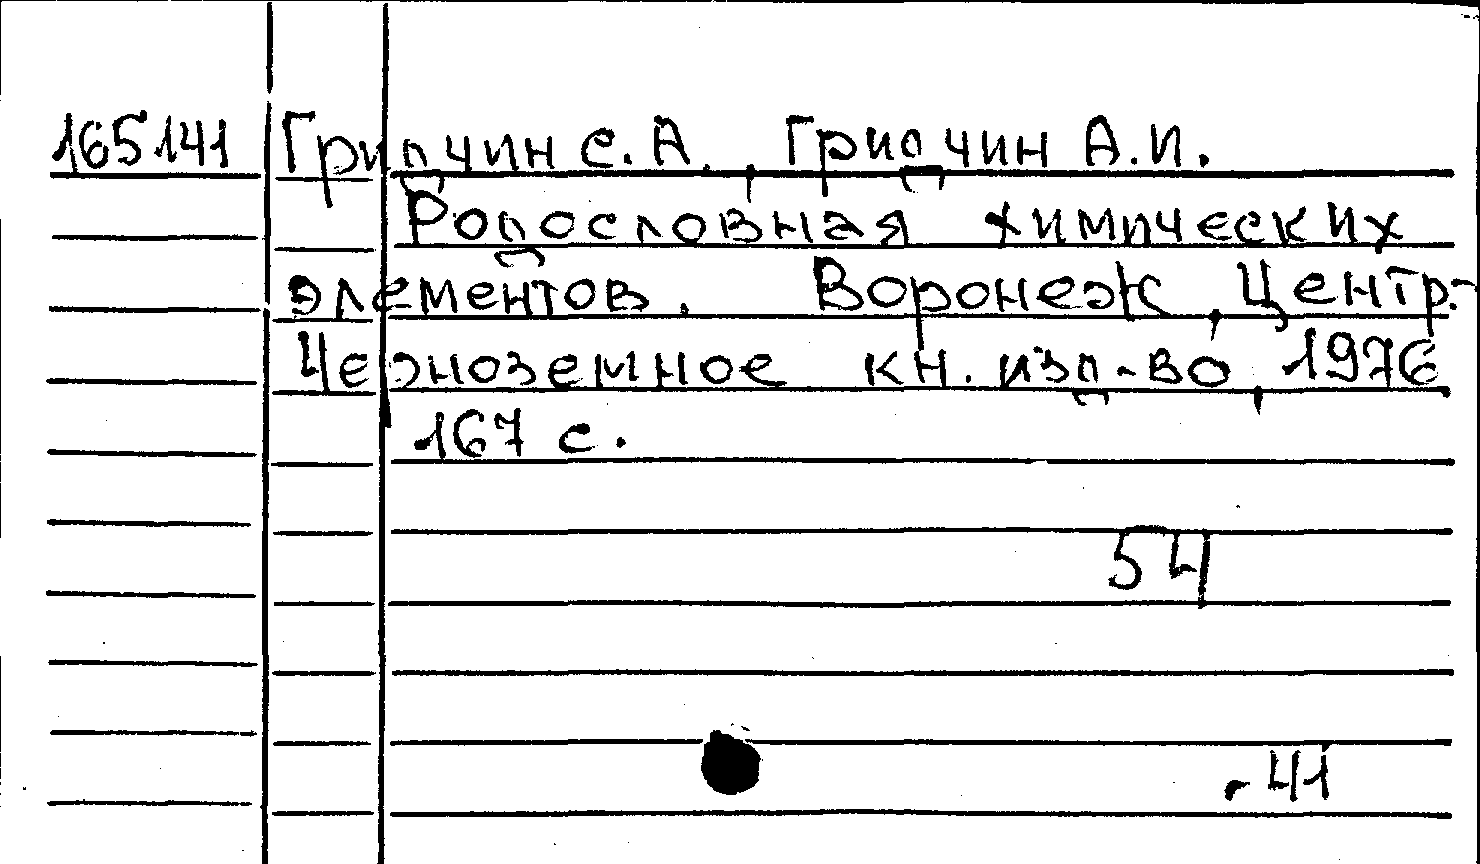 165141 Гридчин С.А., Гридчин А.И.
Родословная химических
элементов. Воронеж, Центр.-
Черноземное кн. изд-во, 1976
167 с.
54
-41